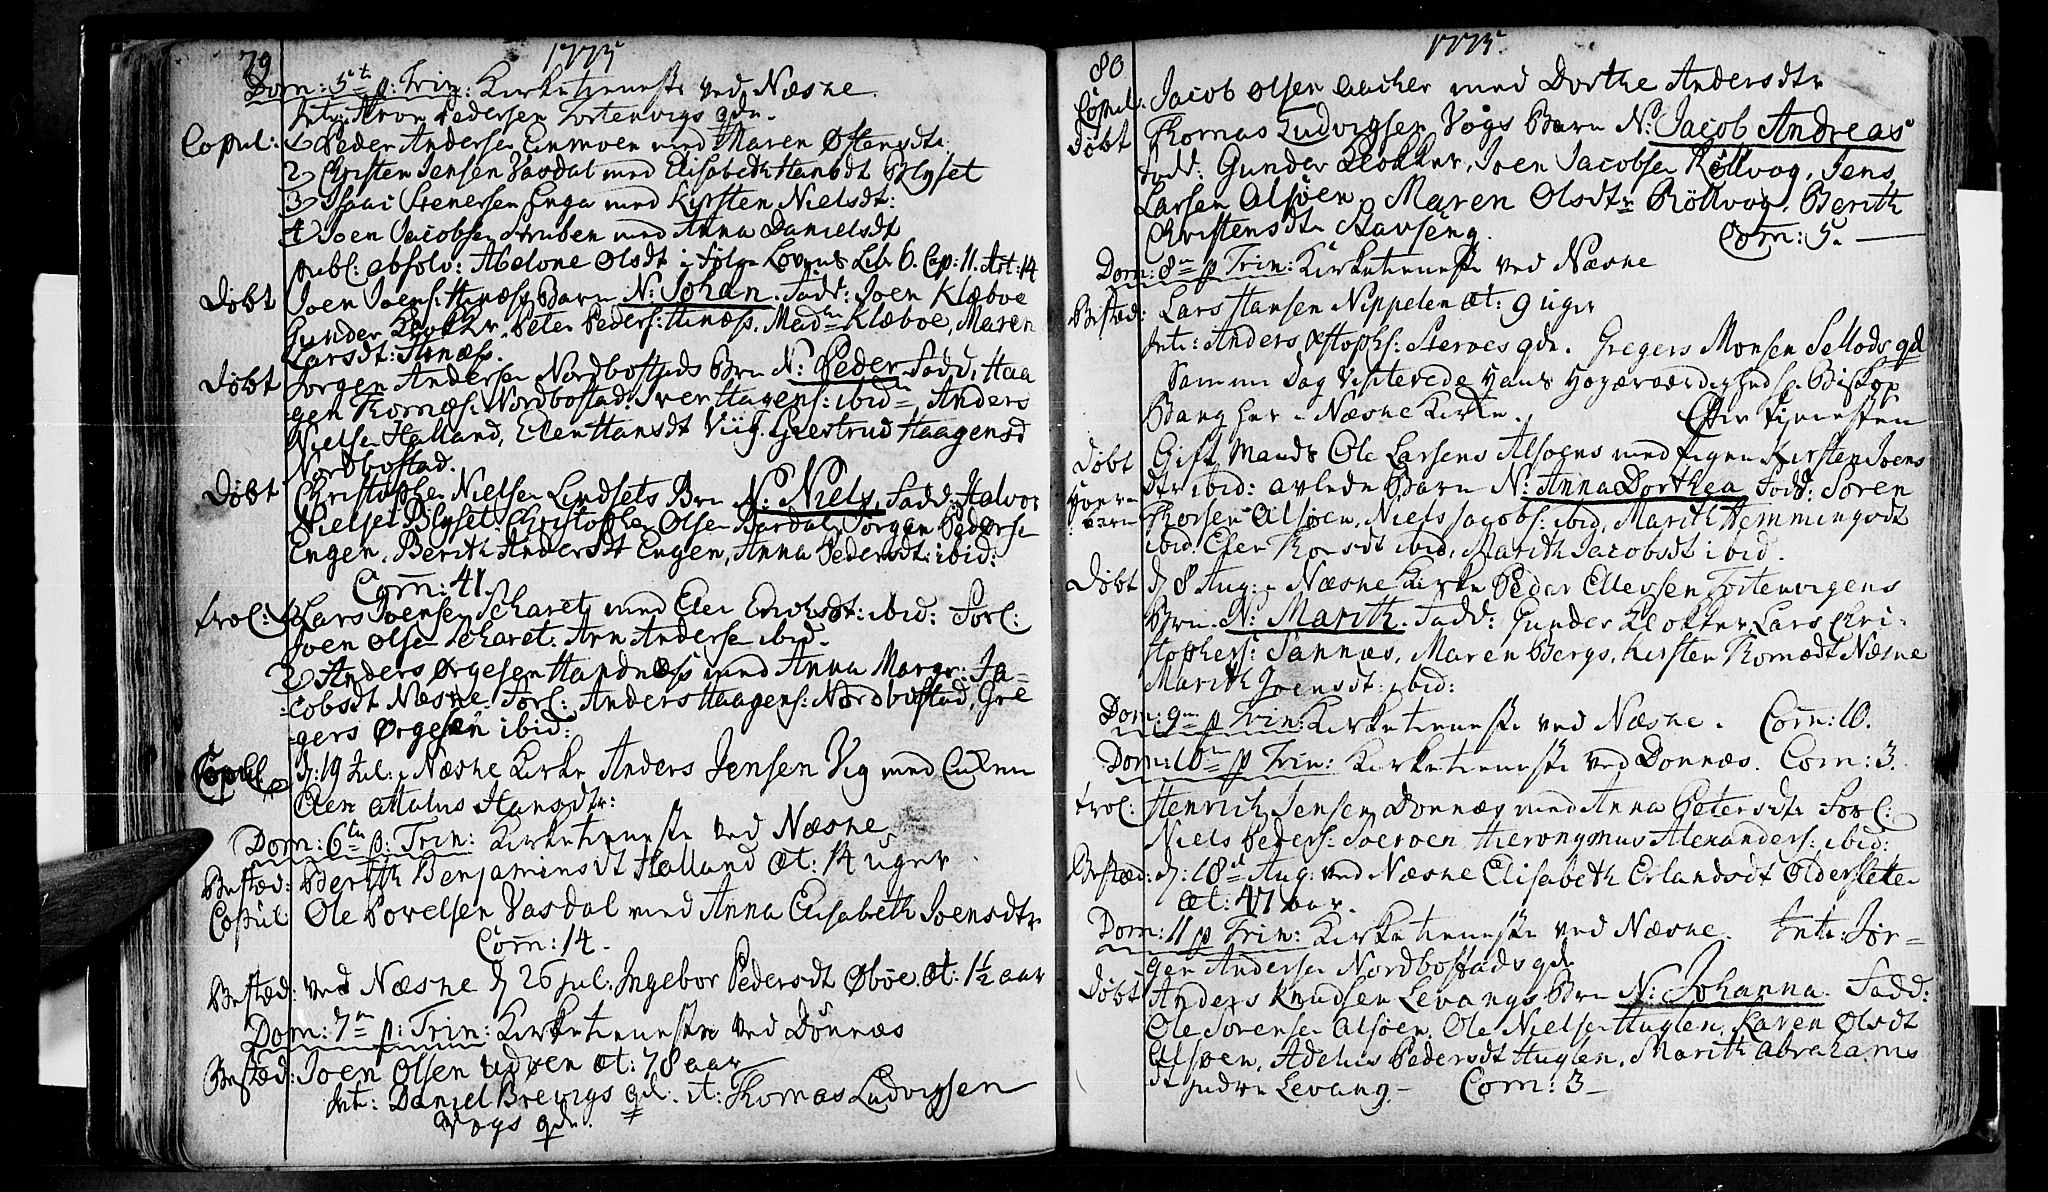 79
1775
Dom: 5te p: Trin: Kirketieneste ved Næsne.
Intr: Aron Pedersen Tortenvigs qde.
Copul: 1 Peder Andersen Einmoen med Maren Østensdtr:
2 Christen Jensen Vasdal med Elisabeth Hansdt Blyset
3 Isaac Stenersen Enga med Kirsten Nielsdt:
4 Joen Jacobsen Struben med Anna Danielsdt
publ: absolv: Abelone Olsdt i Følge Lovens Lib 6. Cap: 11. Art: 14
Døbt Joen Joens: Hinæss Barn N: Johan. Fadd: Joen Klæboe
Gunder Klokker, Peter Peders: Hinæss, Madm Klæboe, Maren
Larsdt: Hinæss.
Døbt Jørgen Andersen Nordbostads Brn N: Peder. Fadd: Haa
gen Thomæs: Nordbostad, Iver Hagens: ibidm Anders
Nielsen Halland, Elen Hansdt Viig, Giertrud Haagensd
Nordbostad.
Døbt Christopher Nielsen Lindsets Brn N: Niels, Fadd: Halvor
Nielsen Blyset, Christopher Olsen Bardal, Jørgen Pedersen
Engen, Berith Andersdt Engen, Anna Pedersdt: ibid:
Com: 41.
trol: 1 Lars Joensen Scharet med Elen Erichsdt: ibid: Forl:
Joen Olsen Scharet. Arn Andersen ibid.
2 Anders Ørgesen Handnæss med Anna Margr: Ja-
cobsdt Næsne. Forl: Anders Haagens: Nordbostad, Gre
gers Ørgesen ibid:
Copul d: 19 Jul: i Næsne Kirke Anders Jensen Vig med Enken
Elen Hansdtr:
Dom: 6te p: Trin: Kirketieneste ved Næsne
Bested: Berith Benjaminsdt Halland æt: 14 uger
Copul Ole Povelsen Vasdal med Anna Elisabeth Joensdtr
Com: 14.
Bested: ved Næsne d 26 Jul. Ingebor Pedersdt Øbøe. æt: 1½ aar
Dom: 7m p: Trin: Kirketieneste ved Dönnæs
Bested: Joen Olsen Udøen æt: 78 aar
Int: Daniel Brevigs qd. it: Thomas Ludvigsen
Vogs qde.
80
1775.
Copul: Jacob Olsen med Dorthe Andersdtr
Døbt Thomas Ludvigsen Vogs Barn N: Jacob Andreas
Fadd: Gunder Klokker, Joen Jacobsen Röllvog, Jens
Larsen Alsøen, Maren Olsdtr Röllvog, Berith
Christensdt Stavseng. Com: 5.
Dom: 8m p Trin: Kirketieneste ved Næsne
Bested: Lars Hansen Nippelen æt: 9 uger
Intr: Anders Xstophs: qde. Gregers Monsen Selløds qd
Samme Dag Visiterede Hans Høyærværdighed Biskop
Bang her i Næsne Kirke. Efter tienesten
Døbt Gift Mands Ole Larsens Alsøens med Pigen Kirsten Joens
Hoere dtr ibid: avlede Barn N: Anna Dorthea Fadd: Søren
barn Thorsen Alsøen, Niels Jacobs: ibid, Marith Hemmingsdt
ibid. Elen Thorsdt ibid, Marith Jacobsdt ibid.
Døbt d 8 Aug: i Næsne Kirke Peder Ellevsen Tortenvigens
Brn. N: Marith. Fadd: Gunder Klokker Lars Chri-
stophers: Sannæs, Maren Bergs, Kirsten Thomædt Næsne
Marith Joensdt: ibid:
Dom: 9m p Trin: Kirketieneste ved Næsne. Com: 10.
Dom: 10m p Trin: Kirketieneste ved Dönnæs. Com: 3.
trol: Henrich Jensen Dönnæs med Anna Petersdt Forl:
Niels Peders: Hieronymus Alexanders: ibid:
Bested: d: 18d Aug: ved Næsne Elisabeth Erlandsdt Oldersletten
æt: 41 aar.
Dom: 11 p Trin: Kirketieneste ved Næsne. Intr: Jør-
gen Andersen Nordbostads qde
Døbt Anders Knudsen Levangs Brn N: Johanna. Fadd:
Ole Sørensen Alsøen, Ole Nielsen Huglen, Karen Olsdt
Alsøen, Adelus Pedersdt Huglen, Marith Abrahams
dt Indre Levang. Com: 3